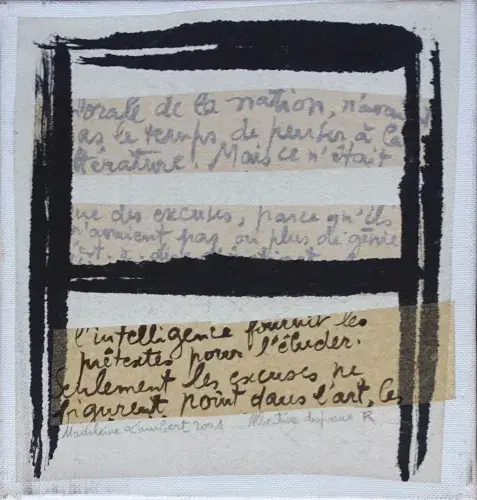 morale de la nation, n'avai
as le temps de penser à la
térature. Mais ce n'était
ue des excuses, parce qu'ils
n'avaient pas ou plus de génie
c'est-à-dire d'instinct
l'intelligence fournit les
prétextes pour l'éluder.
Seulement les excuses ne
figurent point dans l'art, les
Madeleine Lambert 2001 Albertine disparue R